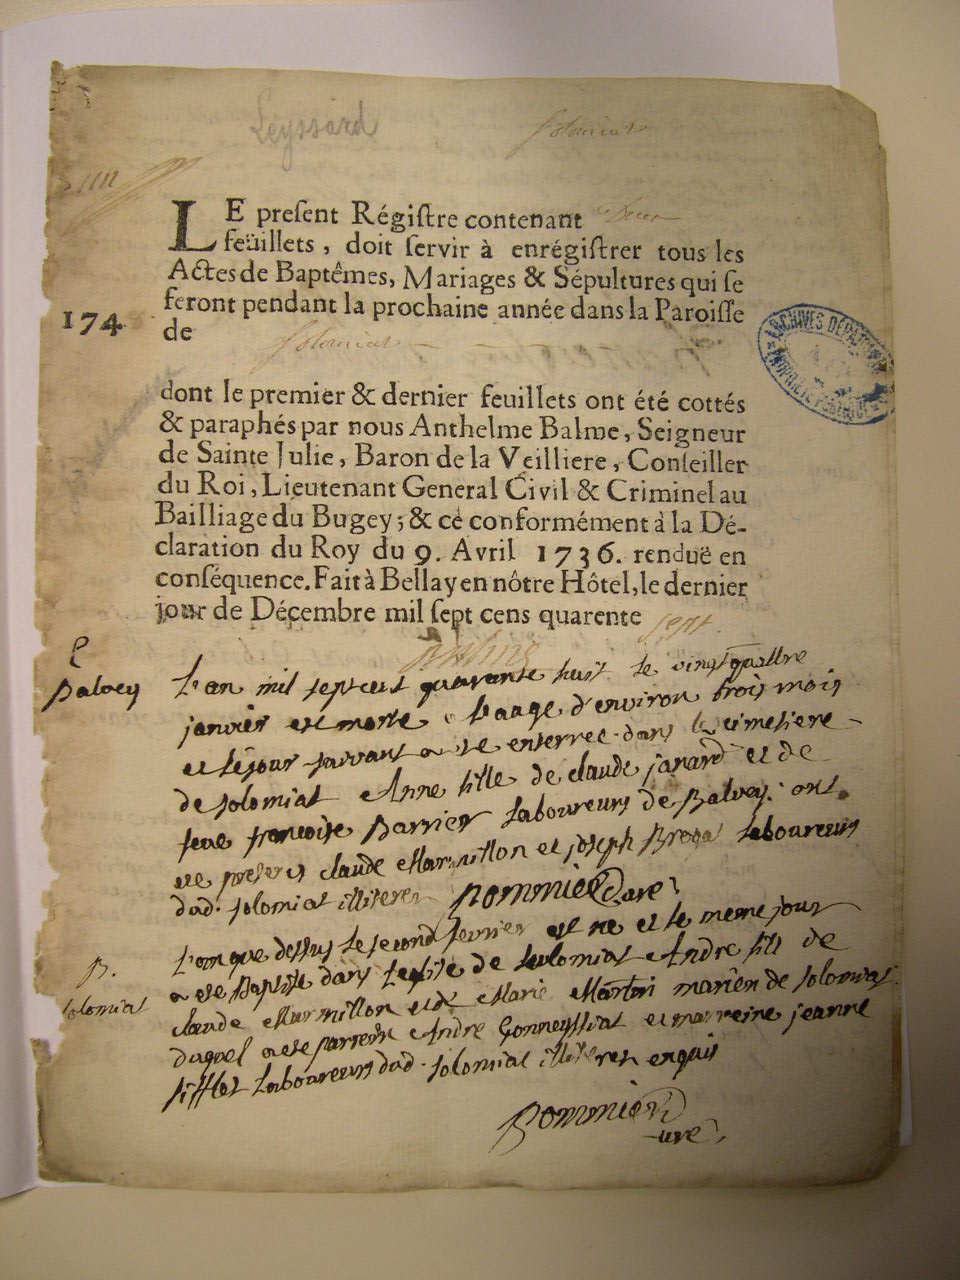 Leyssard
Solomiat
LE present Régistre contenant Deux
feüillets, doit servir à enrégistrer tous les
Actes de Baptêmes, Mariages & Sépultures qui se
feront pendant la prochaine année dans la Paroisse
174
de Solomiat
ARCHIVES DÉPARTEM
PROPRIÉTÉ PUBLIQUE
dont le premier & dernier feuillets ont été cottés
& paraphés par nous Anthelme Balme, Seigneur
de Sainte Julie, Baron de la Veilliere, Conseiller
du Roi, Lieutenant General Civil & Criminel au
Bailliage du Bugey; & ce conformément à la Dé-
claration du Roy du 9. Avril 1736. renduë en
conséquence. Fait à Bellay en nôtre Hôtel, le dernier
jour de Décembre mil sept cens quarente sept
Balvey
L'an mil sept cent quarante huit le vingt quattre
janvier est morte a l'aage d'environ trois mois
et le jour suivant a ete enterree dans le cimetiere
de solomiat Anne fille de claude janard et de
feue francoise Barrier laboureurs de Balvey. ont
ete presents claude Marmillon et joseph laboureurs
dud. solomiat illiteres Pommier Cure
B.
solomiat
L'an que dessus le second fevrier est ne et le meme jour
a ete Baptise dans l'eglise de solomiat Andre fils de
claude Marmillon et de Marie Martin mariés de solomiat
duquel a ete parrein Andre Gonneyssiat et marreine jeanne
sifflet laboureurs dud. solomiat illiteres enquis
Pommier
cure